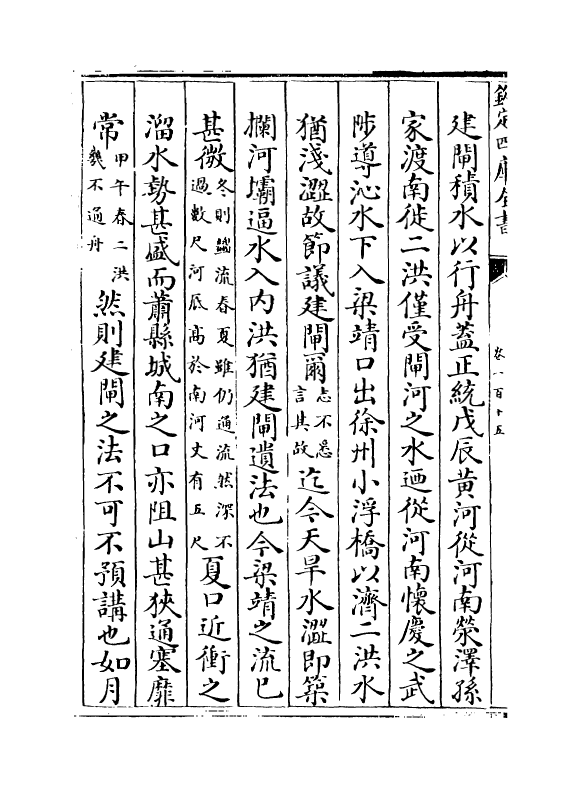 欽定四庫全書
卷一百十五
建閘積水以行舟蓋正統戊辰黃河從河南滎澤孫
家渡南徙二洪僅受閘河之水迺從河南懷慶之武
陟導沁水下入梁靖口出徐州小浮橋以濟二洪水
猶淺澀故節議建閘爾志不悉言其故迄今天旱水澀即築
攔河壩逼水入内洪猶建閘遺法也今梁靖之流已
甚微冬則㡬流春夏雖仍通流然深不過數尺河底高於南河丈有五尺夏口近衝之
溜水勢甚盛而蕭縣城南之口亦阻山甚狹通塞靡
常甲午春二洪㡬不通舟然則建閘之法不可不預講也如月